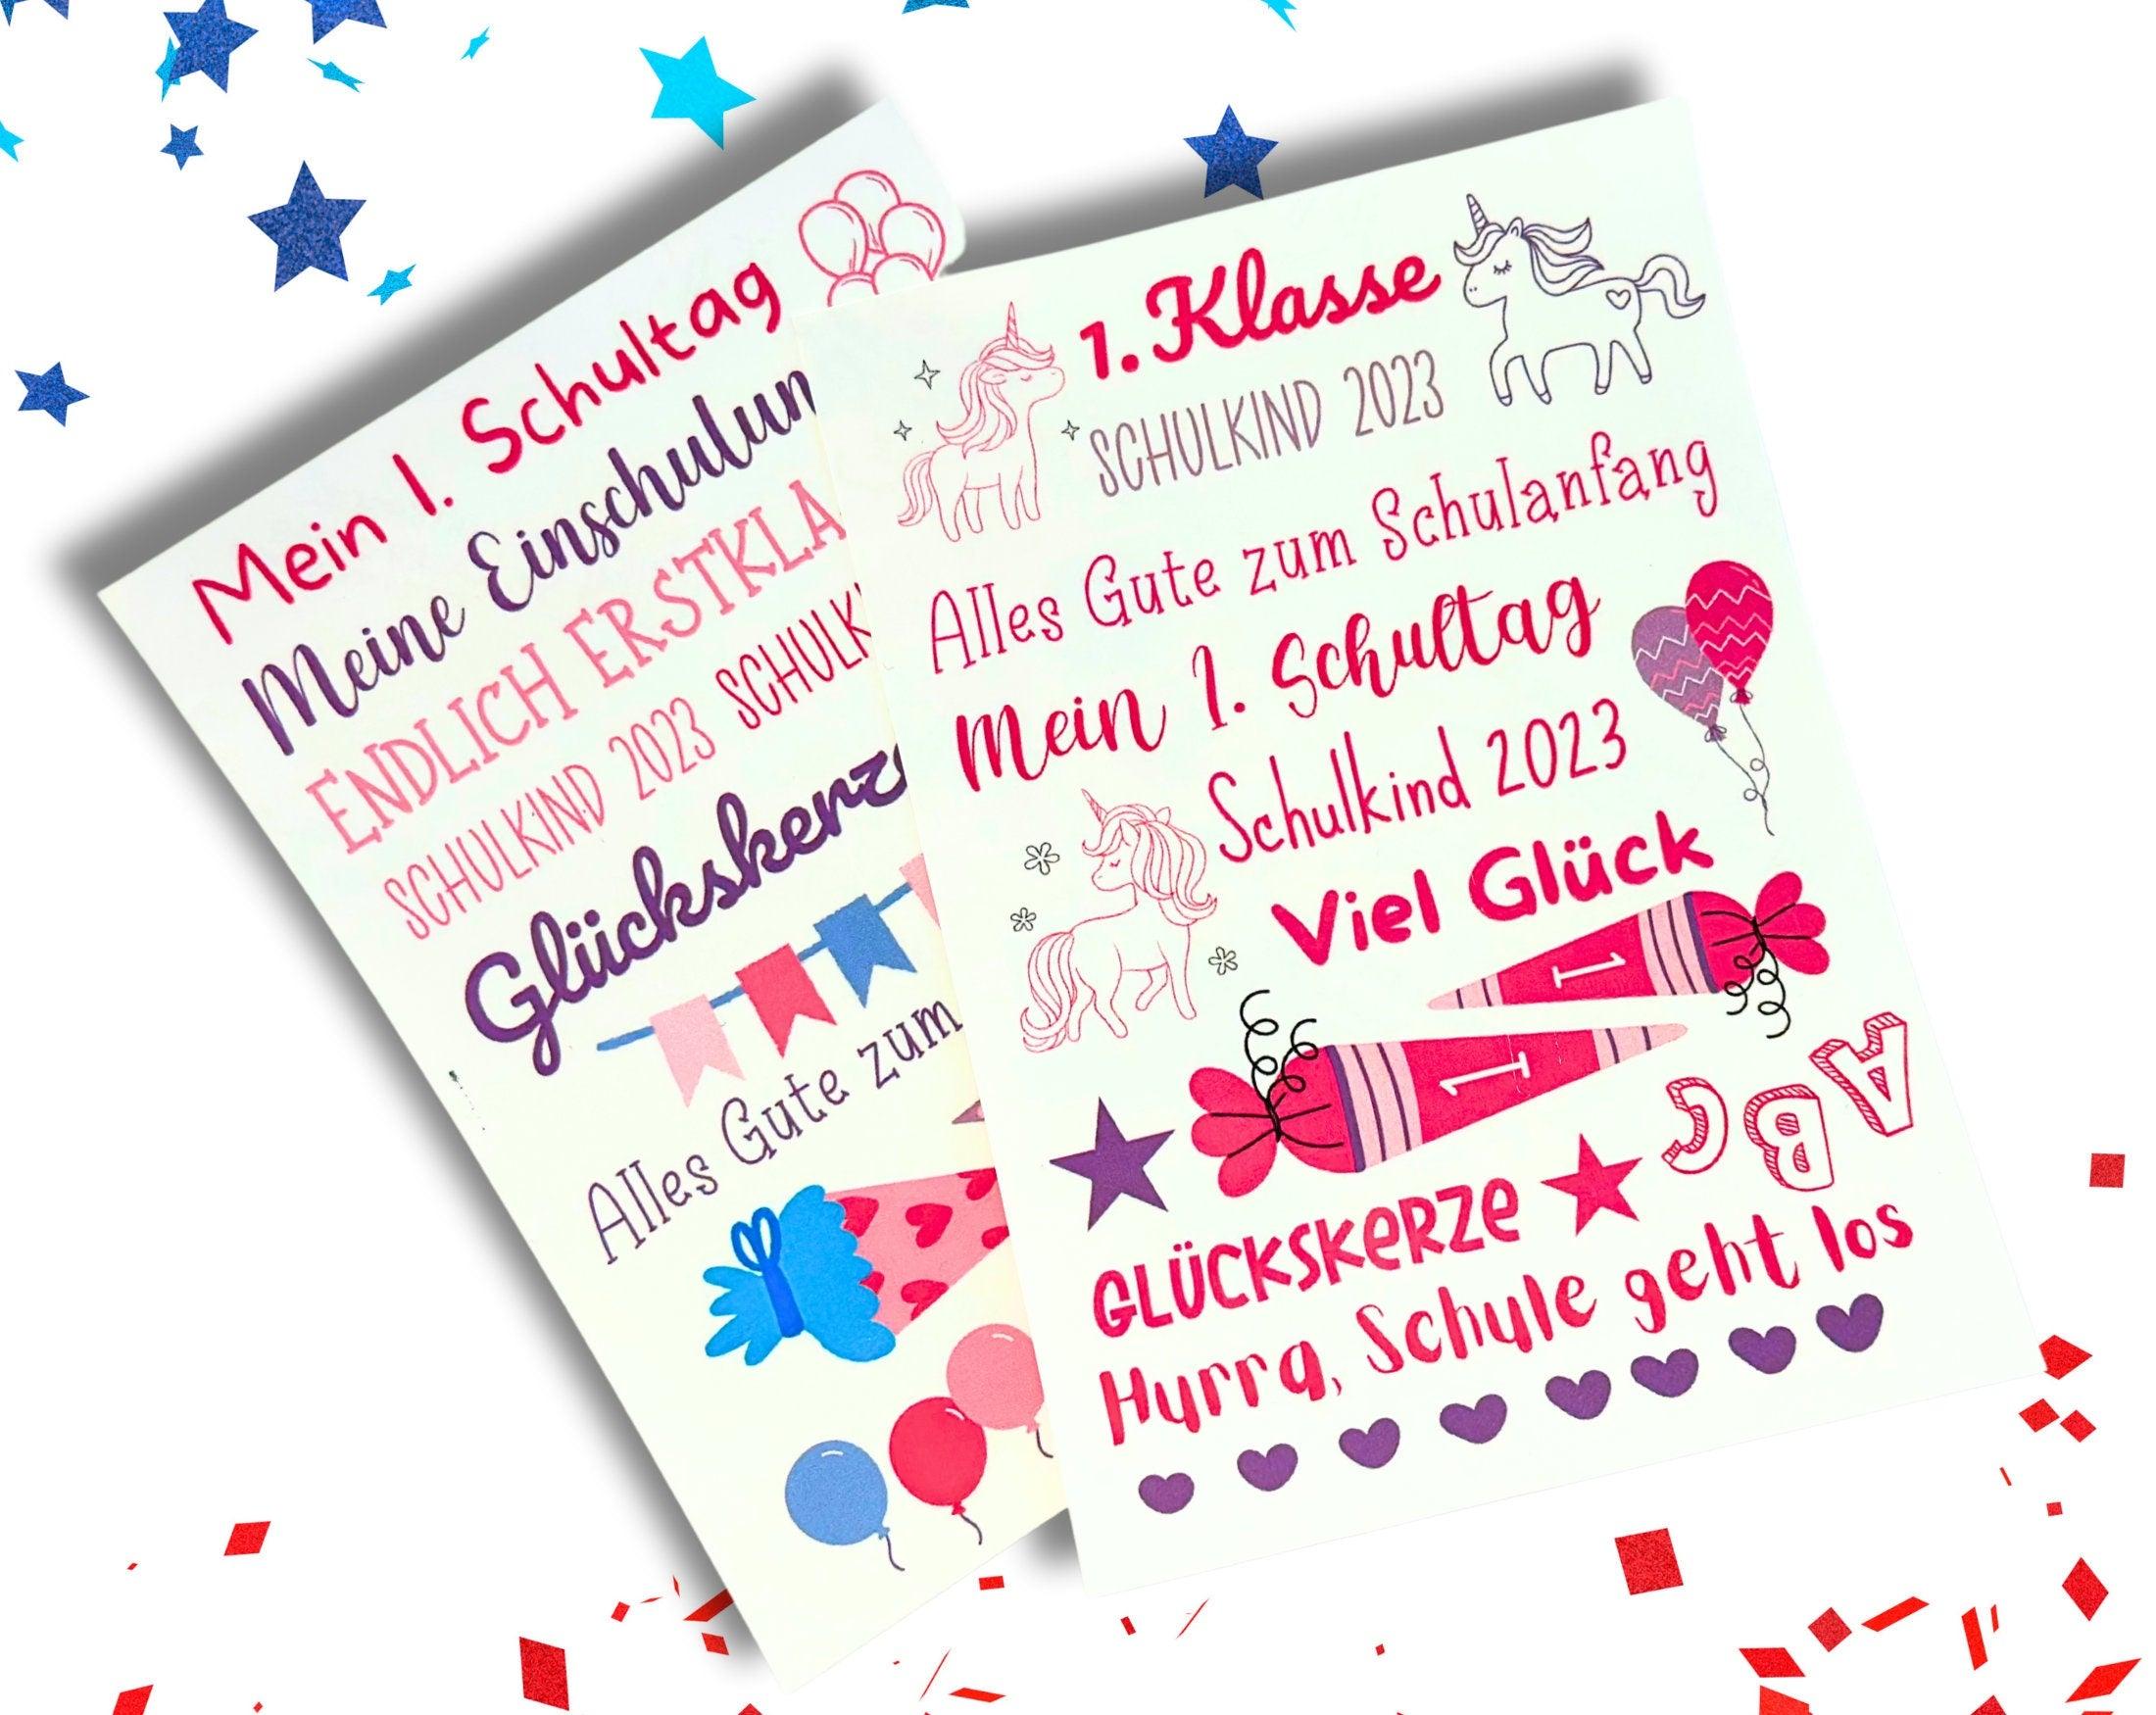 Mein 1. Schultag
Meine Einschulun
ENDLICH ERSTKLA
SCHULKIND 2023 SCHULK
Glückskerz
Alles Gute zum
1. Klasse
SCHULKIND 2023
Alles Gute zum Schulanfang
Mein 1. Schultag
Schulkind 2023
Viel Glück
1
1
ABC
GLÜCKSKERZE
Hurra, Schule geht los